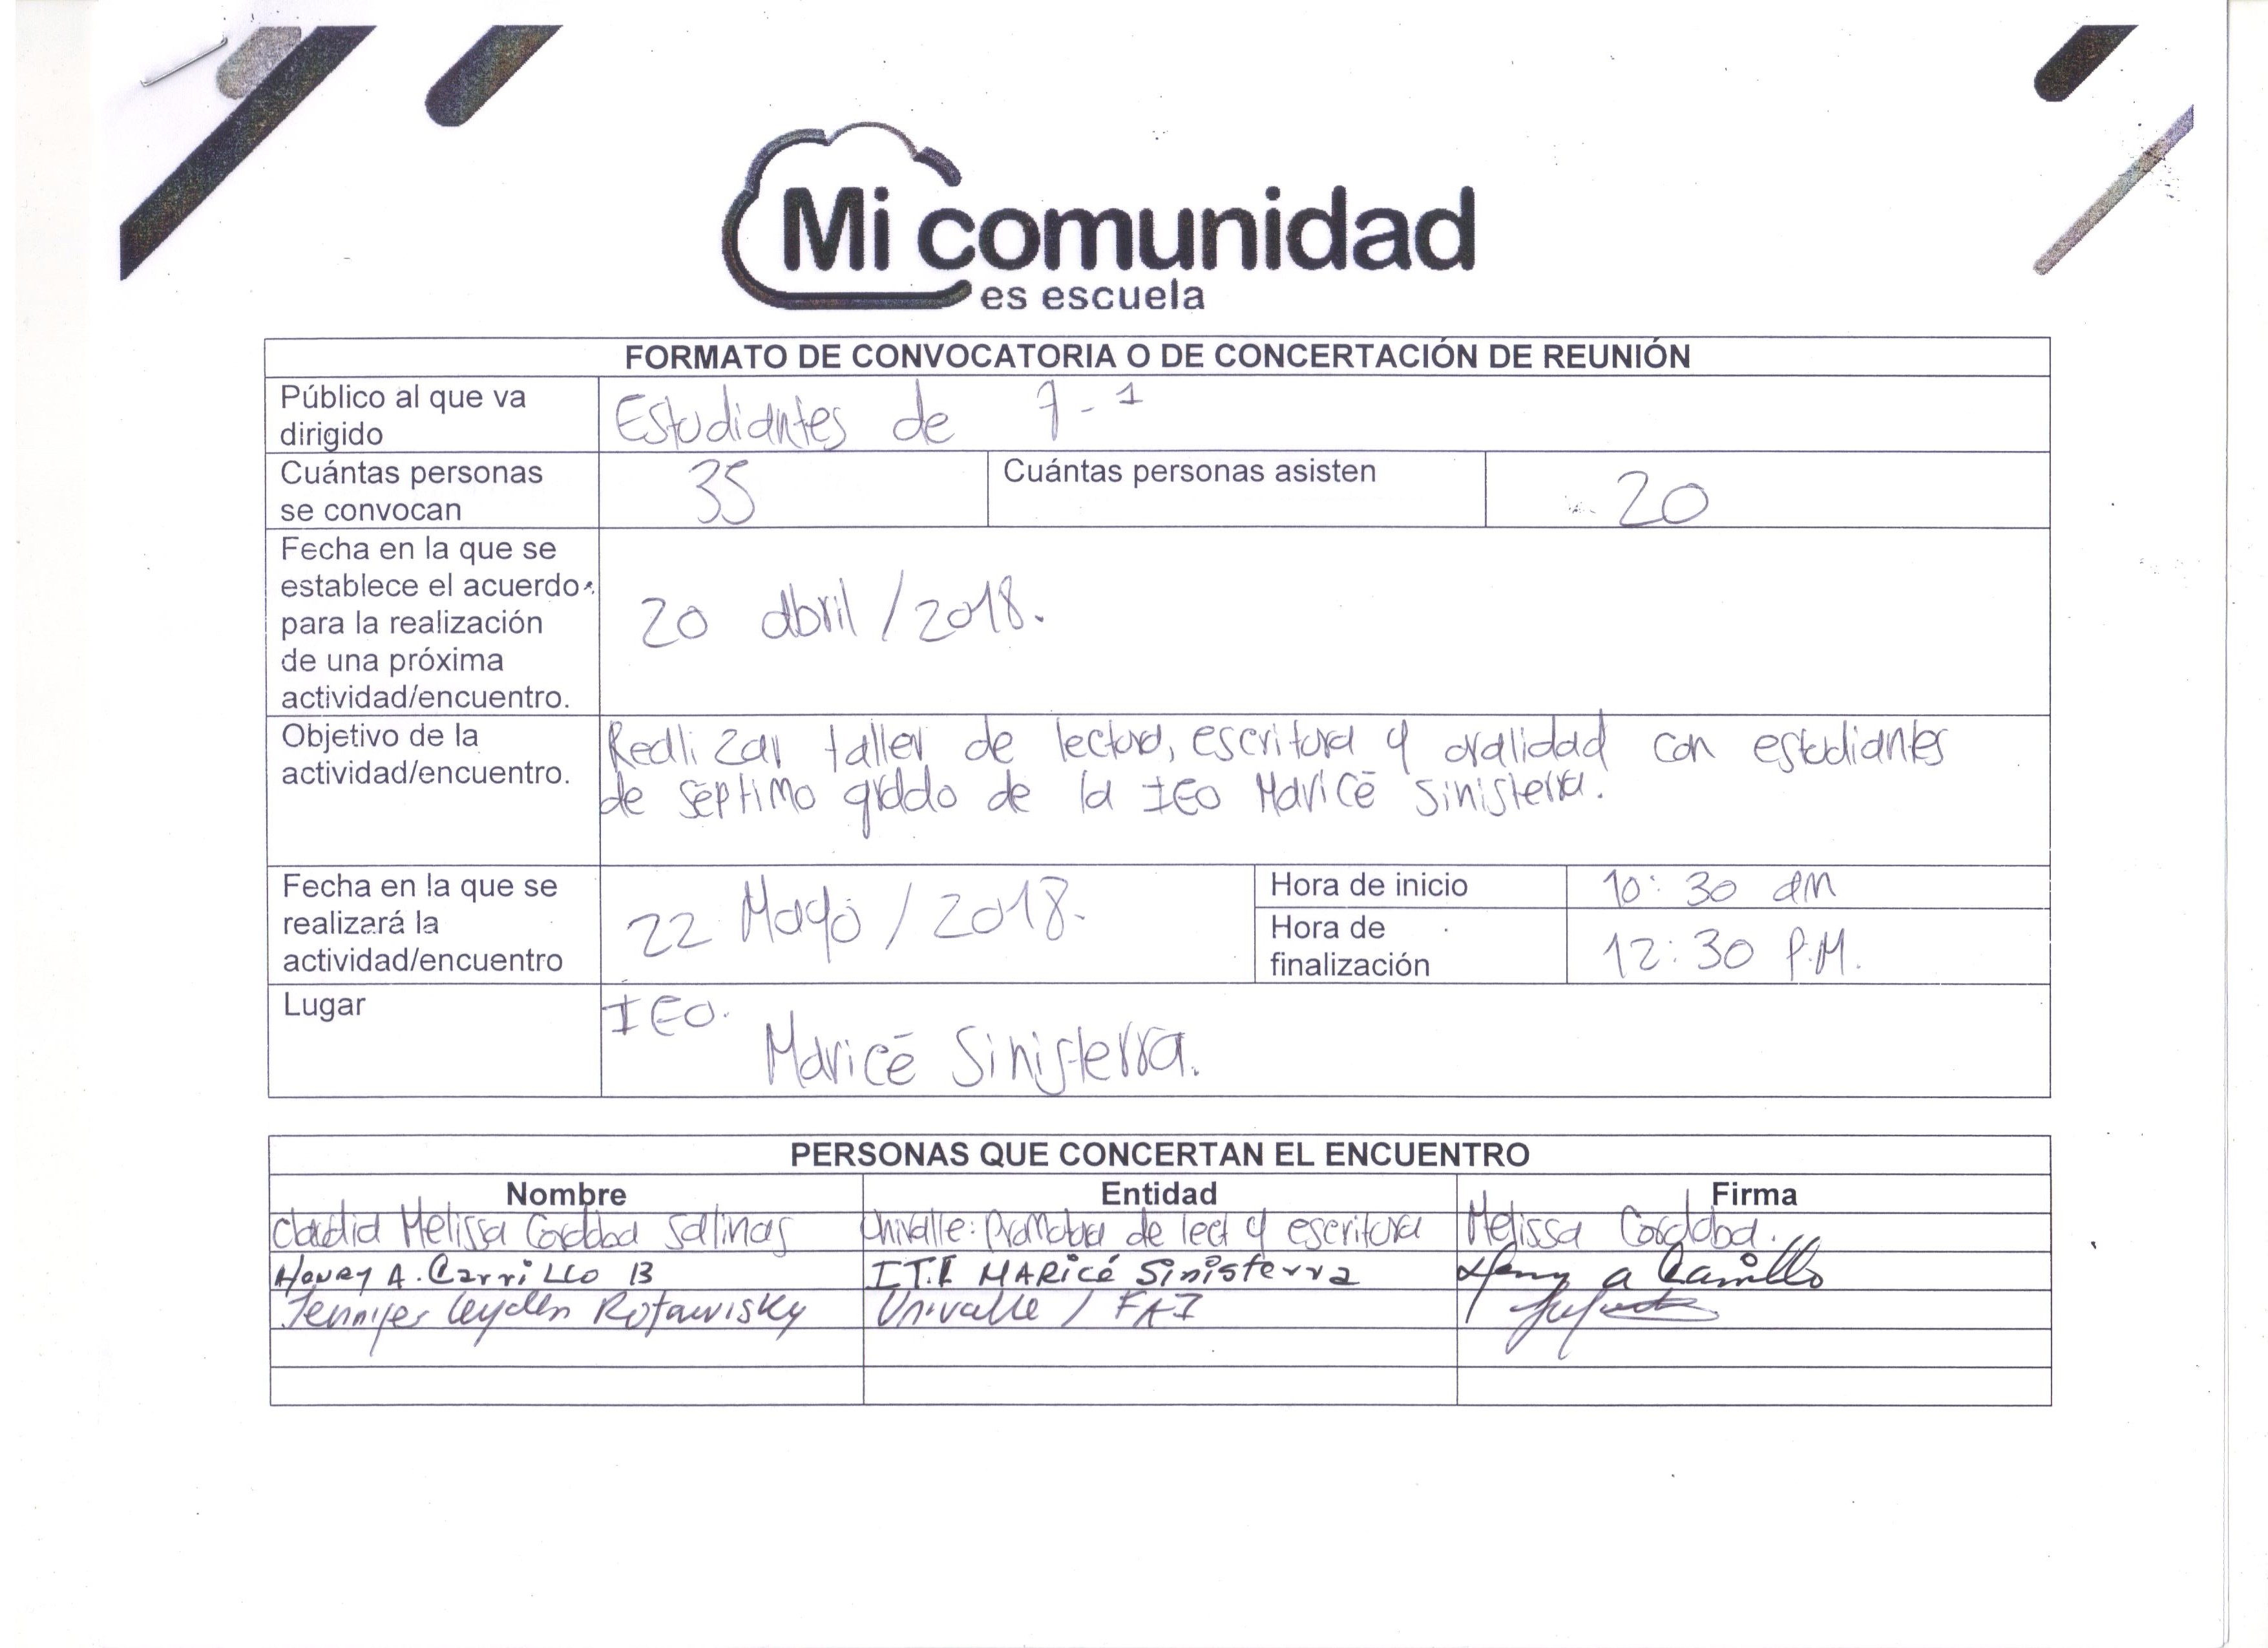 Mi comunidad
es escuela
FORMATO DE CONVOCATORIA O DE CONCERTACIÓN DE REUNIÓN
Público al que va
dirigido
Estudiantes de 7-1
Cuántas personas
se convocan
35
Cuántas personas asisten
20
Fecha en la que se
establece el acuerdo
para la realización
de una próxima
actividad/encuentro.
20 abril / 2018.
Objetivo de la
actividad/encuentro.
Realizar taller de lectura, escritura y oralidad con estudiantes
de séptimo grado de la IEO Maricé Sinisterra.
Fecha en la que se
realizará la
actividad/encuentro
22 Mayo / 2018.
Hora de inicio
10:30 am
Hora de
finalización
12:30 P.M.
Lugar
IEO.
Maricé Sinisterra.
PERSONAS QUE CONCERTAN EL ENCUENTRO
Nombre Entidad Firma
Claudia Melissa Cordoba Salinas Univalle: Promotora de lect y escritura Melissa Cordoba.
Henry A. Carrillo B I.T.I MARicé Sinisterra Henry a Carrillo
Jennifer Leyden Rotawisky Univalle / FAI